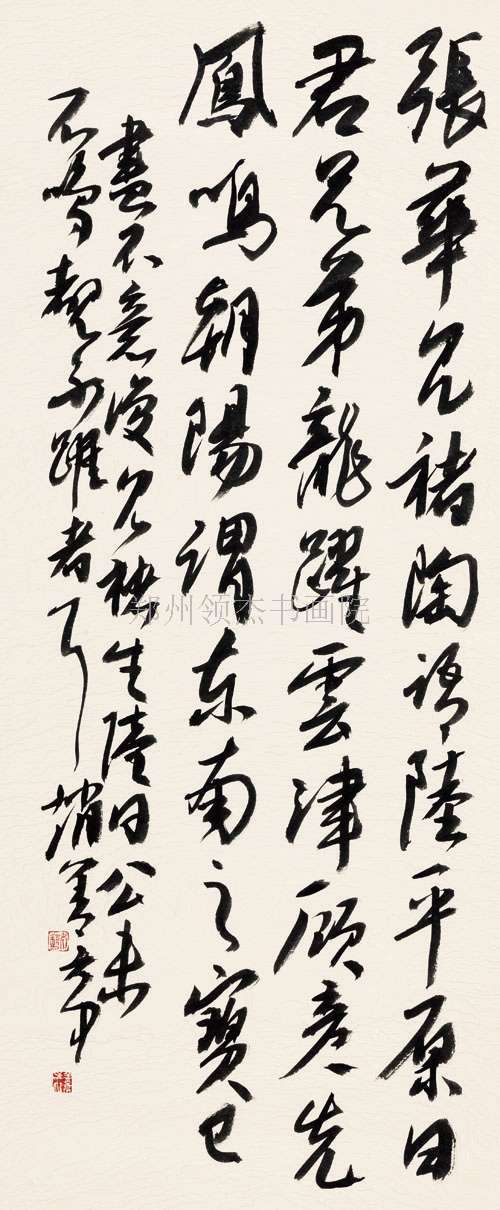 張華見褚陶語陸平原曰
君兄弟龍躍雲津顧彥先
鳳鳴朝陽謂東南之寶已
盡不意復見褚生陸曰公未
不鳴不躍者耳 趙
郑州领杰书画院